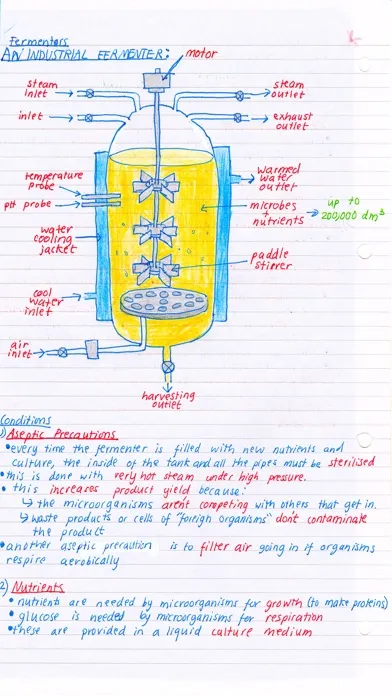 Fermentors
AN INDUSTRIAL FERMENTER:
motor
steam inlet
steam outlet
inlet
exhaust outlet
temperature probe
warmed water outlet
pH probe
microbes + nutrients → up to 200,000 dm³
water cooling jacket
paddle stirrer
cool water inlet
air inlet
harvesting outlet
Conditions
1) Aseptic Precautions
• every time the fermenter is filled with new nutrients and
culture, the inside of the tank and all the pipes must be sterilised
• this is done with very hot steam under high pressure.
• this increases product yield because:
↳ the microorganisms aren't competing with others that get in.
↳ waste products or cells of "foreign organisms" don't contaminate
the product
• another aseptic precaution is to filter air going in if organisms
respire aerobically
2) Nutrients
• nutrients are needed by microorganisms for growth (to make proteins)
• glucose is needed by microorganisms for respiration
• these are provided in a liquid culture medium